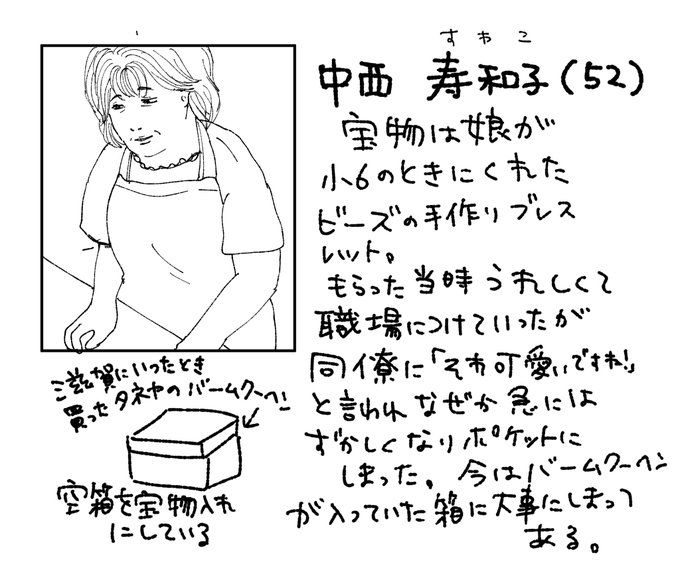 すわこ
中西 寿和子(52)
宝物は娘が
小6のときにくれた
ビーズの手作りブレス
レット。
もらった当時うれしくて
職場につけていったが
同僚に「それ可愛いですね!」
と言われなぜか急には
ずかしくなりポケットに
しまった。今はバームクーヘン
が入っていた箱に大事にしまって
ある。
滋賀にいったとき
買ったタネヤのバームクーヘン
空箱を宝物入れ
にしている